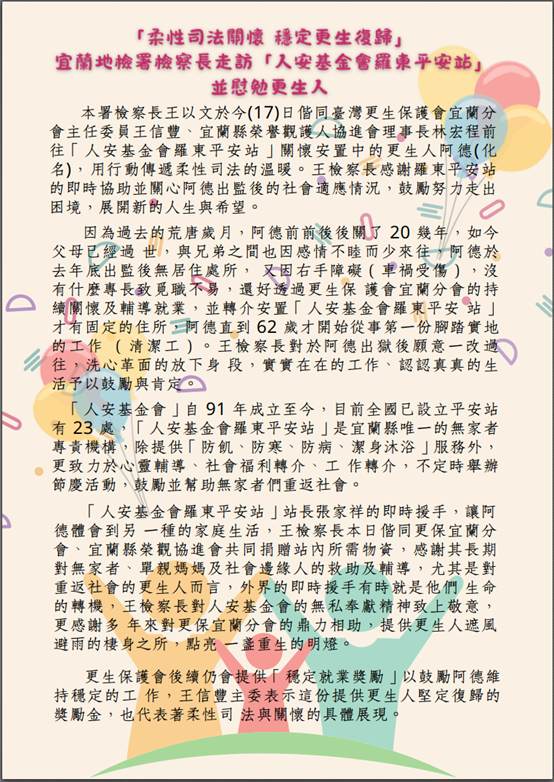 「柔性司法關懷 穩定更生復歸」
宜蘭地檢署檢察長走訪「人安基金會羅東平安站」
並慰勉更生人
本署檢察長王以文於今(17)日偕同臺灣更生保護會宜蘭分
會主任委員王信豐、宜蘭縣榮譽觀護人協進會理事長林宏程前
往「人安基金會羅東平安站 」關懷安置中的更生人阿德(化
名)，用行動傳遞柔性司法的溫暖。王檢察長感謝羅東平安站
的即時協助並關心阿德出監後的社會適應情況，鼓勵努力走出
困境，展開新的人生與希望。
因為過去的荒唐歲月，阿德前前後後關了 20 幾年，如今
父母已經過 世，與兄弟之間也因感情不睦而少來往，阿德於
去年底出監後無居住處所， 又因右手障礙（車禍受傷），沒
有什麼專長致覓職不易，還好透過更生保 護會宜蘭分會的持
續關懷及輔導就業，並轉介安置「人安基金會羅東平安 站」
才有固定的住所，阿德直到 62 歲才開始從事第一份腳踏實地
的工作 （清潔工）。王檢察長對於阿德出獄後願意一改過
往，洗心革面的放下身 段，實實在在的工作、認認真真的生
活予以鼓勵與肯定。
「人安基金會」自 91 年成立至今，目前全國已設立平安站
有 23 處，「人安基金會羅東平安站」是宜蘭縣唯一的無家者
專責機構，除提供「防飢、防寒、防病、潔身沐浴」服務外，
更致力於心靈輔導、社會福利轉介、工 作轉介，不定時舉辦
節慶活動，鼓勵並幫助無家者們重返社會。
「人安基金會羅東平安站」站長張家祥的即時援手，讓阿
德體會到另 一種的家庭生活，王檢察長本日偕同更保宜蘭分
會、宜蘭縣榮觀協進會共同捐贈站內所需物資，感謝其長期
對無家者、單親媽媽及社會邊緣人的救助及輔導，尤其是對
重返社會的更生人而言，外界的即時援手有時就是他們 生命
的轉機，王檢察長對人安基金會的無私奉獻精神致上敬意，
更感謝多 年來對更保宜蘭分會的鼎力相助，提供更生人遮風
避雨的棲身之所，點亮 一盞重生的明燈。
更生保護會後續仍會提供「穩定就業獎勵」以鼓勵阿德維
持穩定的工 作，王信豐主委表示這份提供更生人堅定復歸的
獎勵金，也代表著柔性司 法與關懷的具體展現。